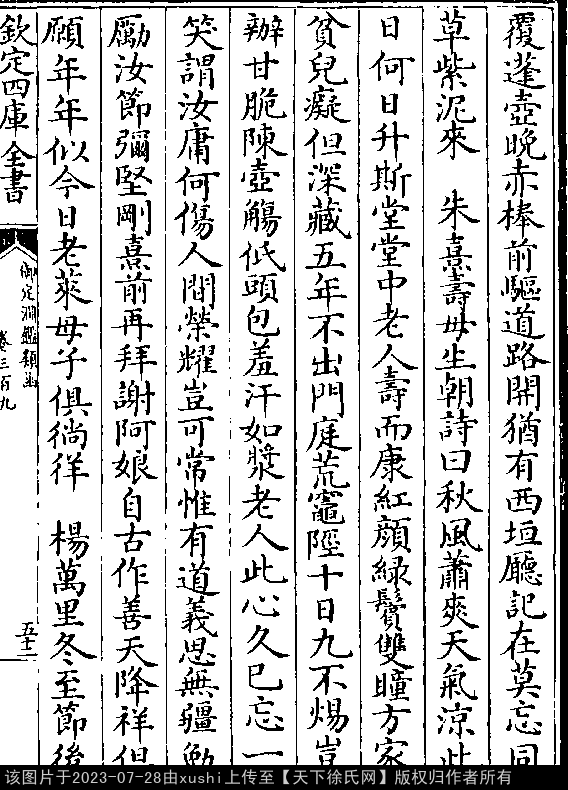 覆蓬壺晚赤棒前驅道路開猶有西垣廳記在莫忘同
草紫泥來 朱熹壽母生朝詩曰秋風蕭爽天氣涼此
日何日升斯堂堂中老人壽而康紅顔綠鬢雙瞳方家
貧兒癡但深藏五年不出門庭荒竈陘十日九不煬豈
辦甘脆陳壺觴低頭包羞汗如漿老人此心久已忘一
笑謂汝庸何傷人間榮耀豈可常惟有道義思無疆勉
勵汝節彌堅剛熹前再拜謝阿娘自古作善天降祥但
願年年似今日老萊母子俱徜徉 楊萬里冬至節後
欽定四庫全書
御定淵鑑類函
卷三百九
五十二
该图片于2023-07-28由xushi上传至【天下徐氏网】版权归作者所有